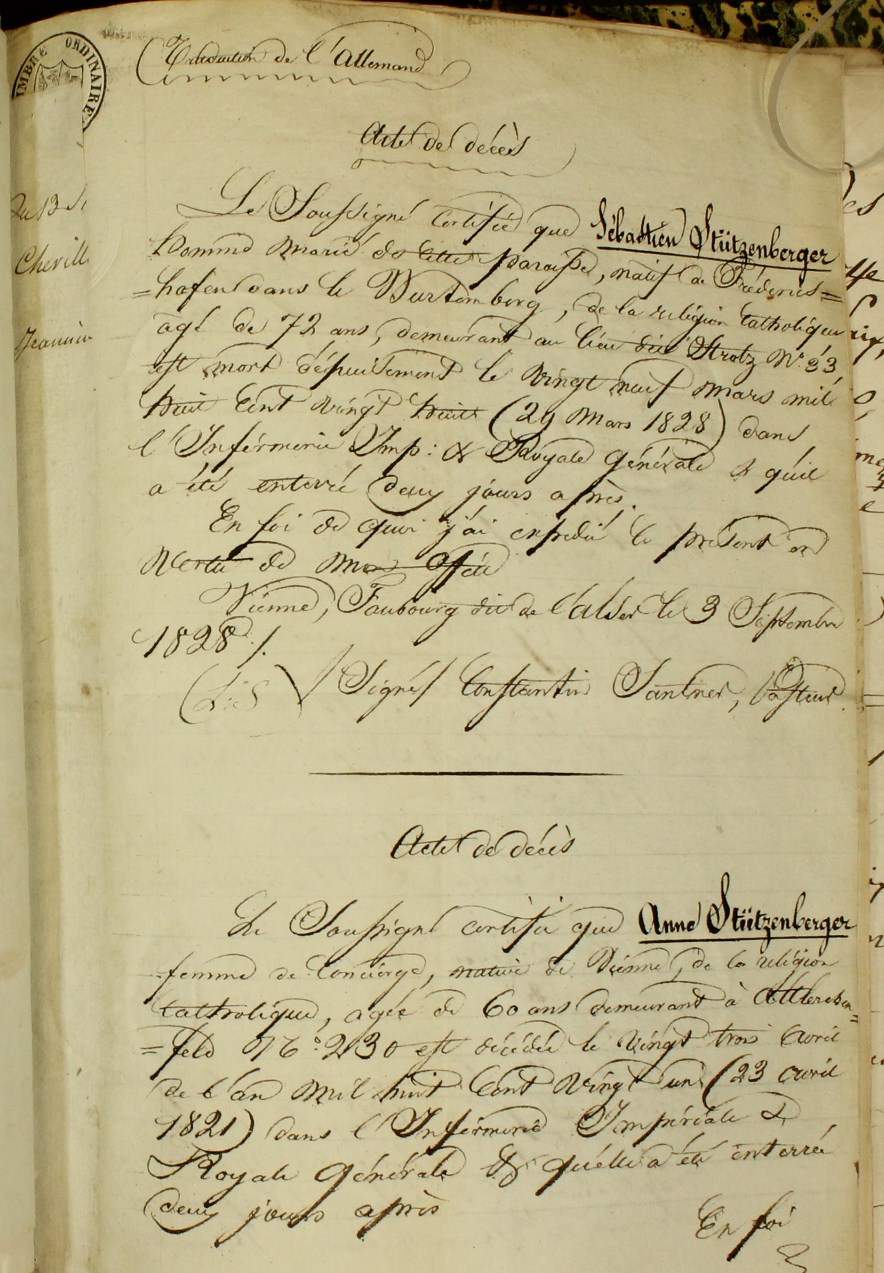 Traduction de l'Allemand
TIMBRE ORDINAIRE
Acte de décès
Du 13
Chevill
Jeannin
Le Soussigné certifie que Sébastien Stützenberger
homme marié de cette paroisse, natif de Fréderics=
=hafen dans le Wurtemberg, de la religion Catholique
agé de 72 ans, demeurant au lieu dit Strotz No. 33
est mort d'épuisement le vingt neuf mars mil
huit Cent vingt huit (29 Mars 1828) dans
l'Infirmerie Imp: & Royale générale & qu'il
a été enterré deux jours après.
En foi de quoi j'ai expédié le présent en
Vertu de mon Office
Vienne, Faubourg dit de l'alser le 3 Septembre
1828 /.
(L:S) / Signé / Constantin Santner, Pasteur
Acte de décès
Le Soussigné certifie que Anne Stützenberger
femme de Concierge, native de Vienne, de la religion
Catholique, agée de 60 ans demeurant à Altlerchen=
=feld No. 230 est décédée le vingt trois avril
de l'an mil huit Cent vingt un (23 avril
1821) dans l'Infirmerie Impériale &
Royale générale & qu'elle a été enterrée
deux jours après
En foi